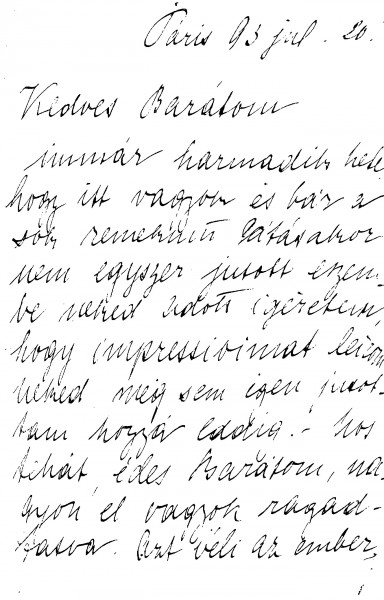 Páris 93 jul. 20.
Kedves Barátom
immár harmadik hete
hogy itt vagyok és bár a
sok remekmű látásakor
nem egyszer jutott eszem-
be neked adott igéretem,
hogy impressióimat leirom
neked még sem igen jutot-
tam hozzá eddig. - Nos
tehát édes Barátom, na-
gyon el vagyok ragad-
tatva. Azt véli az ember,